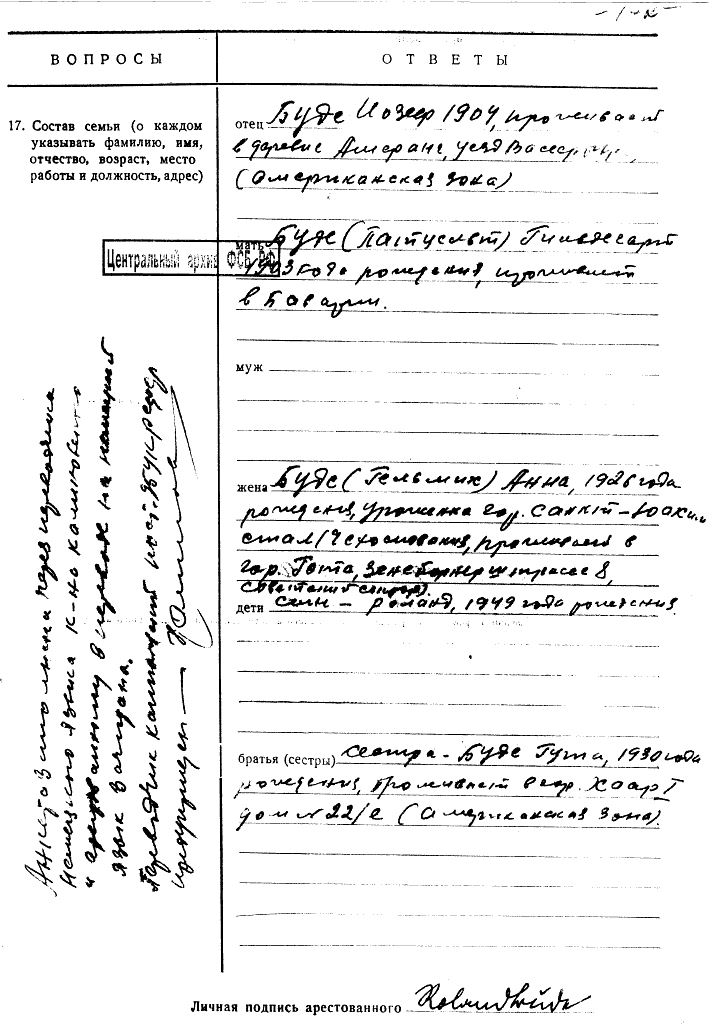 - 1 - 2
ВОПРОСЫ
ОТВЕТЫ
17. Состав семьи (о каждом
указывать фамилию, имя,
отчество, возраст, место
работы и должность, адрес)
отец Буде Иозеф 1904, проживает
в деревне Амеранг, уезд
(Американская зона)
мать Буде (Пастусляк)
1903 года рождения, проживает
в Баварии.
Центральный архив ФСБ РФ
муж
жена Буде (Гельмих) Анна, 1926 года
рождения, уроженка гор. Санкт-Йоахим
стал/Чехословакия, проживает в
гор. Гота, 8,
Советский сектор).
дети сын - Роланд, 1949 года рождения
братья (сестры) сестра - Буде Гута, 1930 года
рождения, проживает в гор. Хаар I
дом № 22/е (Американская зона)
Анкета заполнена через переводчика
немецкого языка к-на
и арестованному в переводе на немецкий
язык зачитана.
Переводчик капитан
Личная подпись арестованного Roland Büde